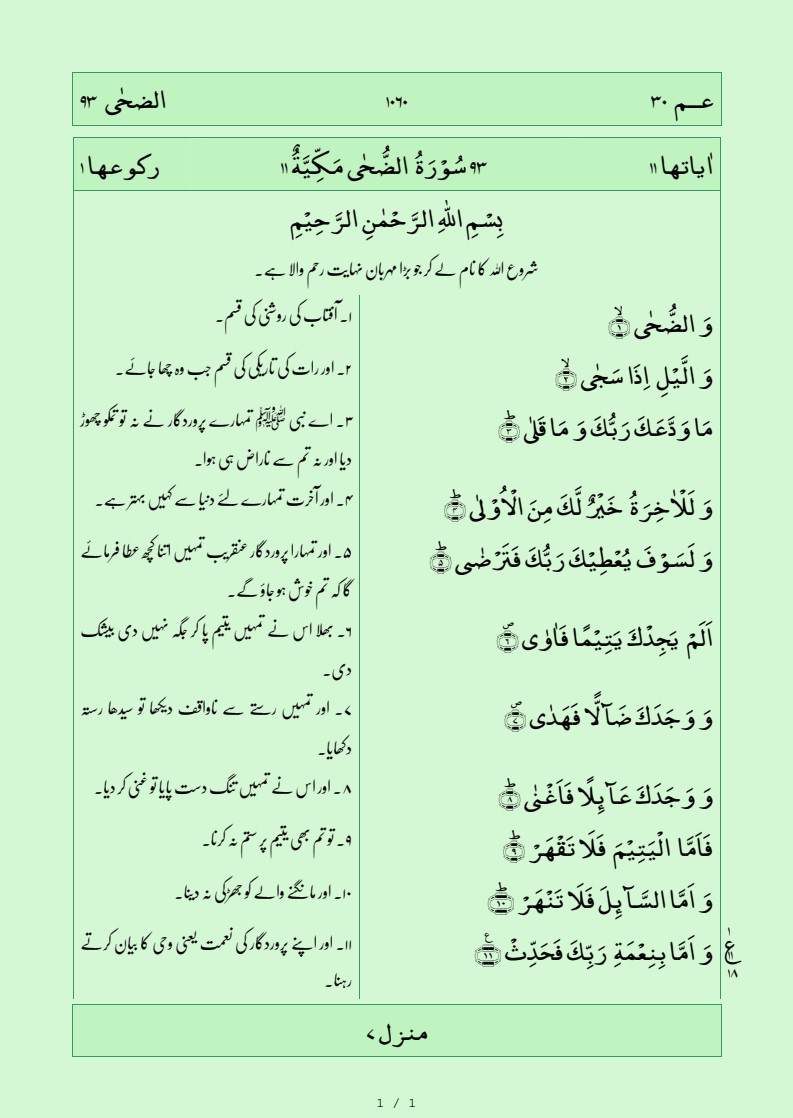 عـــم ۳۰ ۱۰۶۰ الضحٰی ۹۳
اٰیاتها ۱۱ ۹۳ سُوۡرَۃُ الضُّحٰی مَکِّیَّۃٌ ۱۱ رکوعها ۱
بِسۡمِ اللّٰہِ الرَّحۡمٰنِ الرَّحِیۡمِ
شروع اللہ کا نام لے کر جو بڑا مہربان نہایت رحم والا ہے۔
وَ الضُّحٰی ۙ﴿۱﴾
۱۔ آفتاب کی روشنی کی قسم۔
وَ الَّیۡلِ اِذَا سَجٰی ۙ﴿۲﴾
۲۔ اور رات کی تاریکی کی قسم جب وہ چھا جائے۔
مَا وَدَّعَکَ رَبُّکَ وَ مَا قَلٰی ؕ﴿۳﴾
۳۔ اے نبی ﷺ تمہارے پروردگار نے نہ تو تمکو چھوڑ
دیا اور نہ تم سے ناراض ہی ہوا۔
وَ لَلۡاٰخِرَۃُ خَیۡرٌ لَّکَ مِنَ الۡاُوۡلٰی ؕ﴿۴﴾
۴۔ اور آخرت تمہارے لئے دنیا سے کہیں بہتر ہے۔
وَ لَسَوۡفَ یُعۡطِیۡکَ رَبُّکَ فَتَرۡضٰی ؕ﴿۵﴾
۵۔ اور تمہارا پروردگار عنقریب تمہیں اتنا کچھ عطا فرمائے
گا کہ تم خوش ہو جاؤ گے۔
اَلَمۡ یَجِدۡکَ یَتِیۡمًا فَاٰوٰی ۪﴿۶﴾
۶۔ بھلا اس نے تمہیں یتیم پا کر جگہ نہیں دی بیشک
دی۔
وَ وَجَدَکَ ضَآلًّا فَہَدٰی ۪﴿۷﴾
۷۔ اور تمہیں رستے سے ناواقف دیکھا تو سیدھا رستہ
دکھایا۔
وَ وَجَدَکَ عَآئِلًا فَاَغۡنٰی ؕ﴿۸﴾
۸۔ اور اس نے تمہیں تنگ دست پایا تو غنی کر دیا۔
فَاَمَّا الۡیَتِیۡمَ فَلَا تَقۡہَرۡ ؕ﴿۹﴾
۹۔ تو تم بھی یتیم پر ستم نہ کرنا۔
وَ اَمَّا السَّآئِلَ فَلَا تَنۡہَرۡ ﴿ؕ۱۰﴾
۱۰۔ اور مانگنے والے کو جھڑکی نہ دینا۔
وَ اَمَّا بِنِعۡمَۃِ رَبِّکَ فَحَدِّثۡ ﴿٪۱۱﴾
۱۱۔ اور اپنے پروردگار کی نعمت یعنی وحی کا بیان کرتے
رہنا۔
۱
ع ۱۱
۱۸
منزل ۷
1 / 1